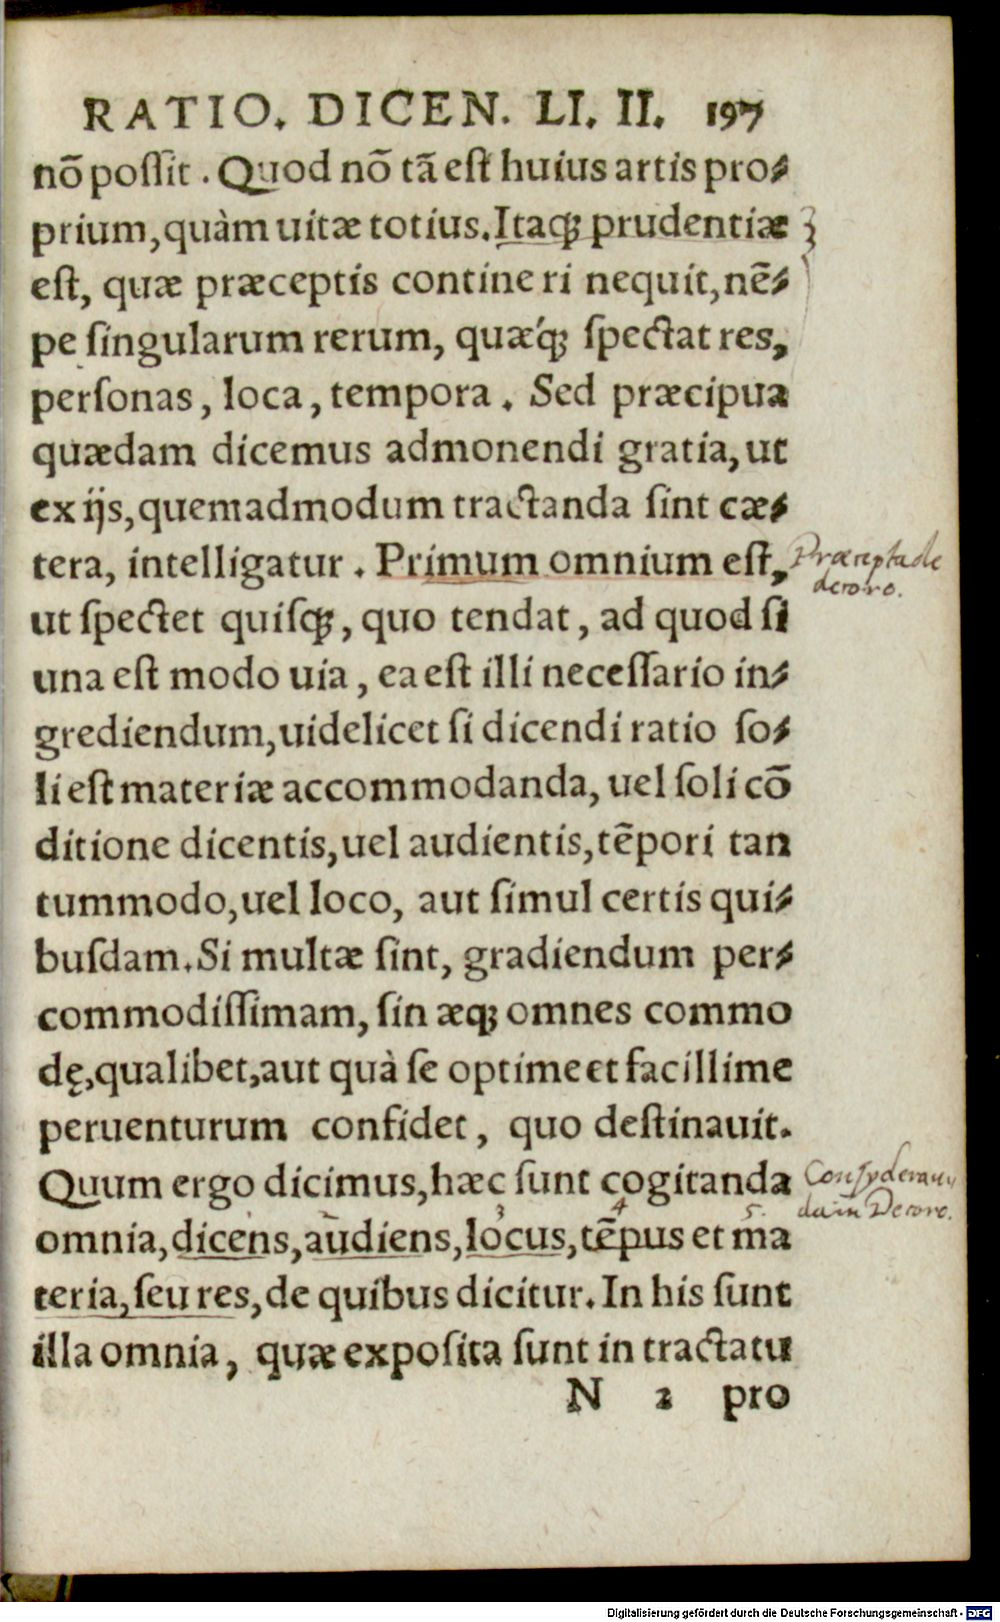 RATIO. DICEN. LI. II. 197
nõ poſſit. Quod nõ tã eſt huius artis pro⸗
prium, quàm uitæ totius. Itaq; prudentiæ
eſt, quæ præceptis contineri nequit, nẽ⸗
pe ſingularum rerum, quæq́; ſpectat res,
perſonas, loca, tempora. Sed præcipua
quædam dicemus admonendi gratia, ut
ex ijs, quemadmodum tractanda ſint cæ⸗
tera, intelligatur. Primum omnium eſt,
Præcepta de
decoro.
ut ſpectet quiſq;, quo tendat, ad quod ſi
una eſt modo uia, ea eſt illi neceſſario in⸗
grediendum, uidelicet ſi dicendi ratio ſo⸗
li eſt materiæ accommodanda, uel ſoli cõ
ditione dicentis, uel audientis, tẽpori tan
tummodo, uel loco, aut ſimul certis qui⸗
buſdam. Si multæ ſint, gradiendum per⸗
commodiſſimam, ſin æq; omnes commo
dę, qualibet, aut quà ſe optime et facillime
peruenturum confidet, quo deſtinauit.
Quum ergo dicimus, hæc ſunt cogitanda
Consyderan
da in Decoro.
3 4 5.
omnia, dicens, audiens, locus, tẽpus et ma
teria, ſeu res, de quibus dicitur. In his ſunt
illa omnia, quæ expoſita ſunt in tractatu
N 2 pro
Digitalisierung gefördert durch die Deutsche Forschungsgemeinschaft - DFG